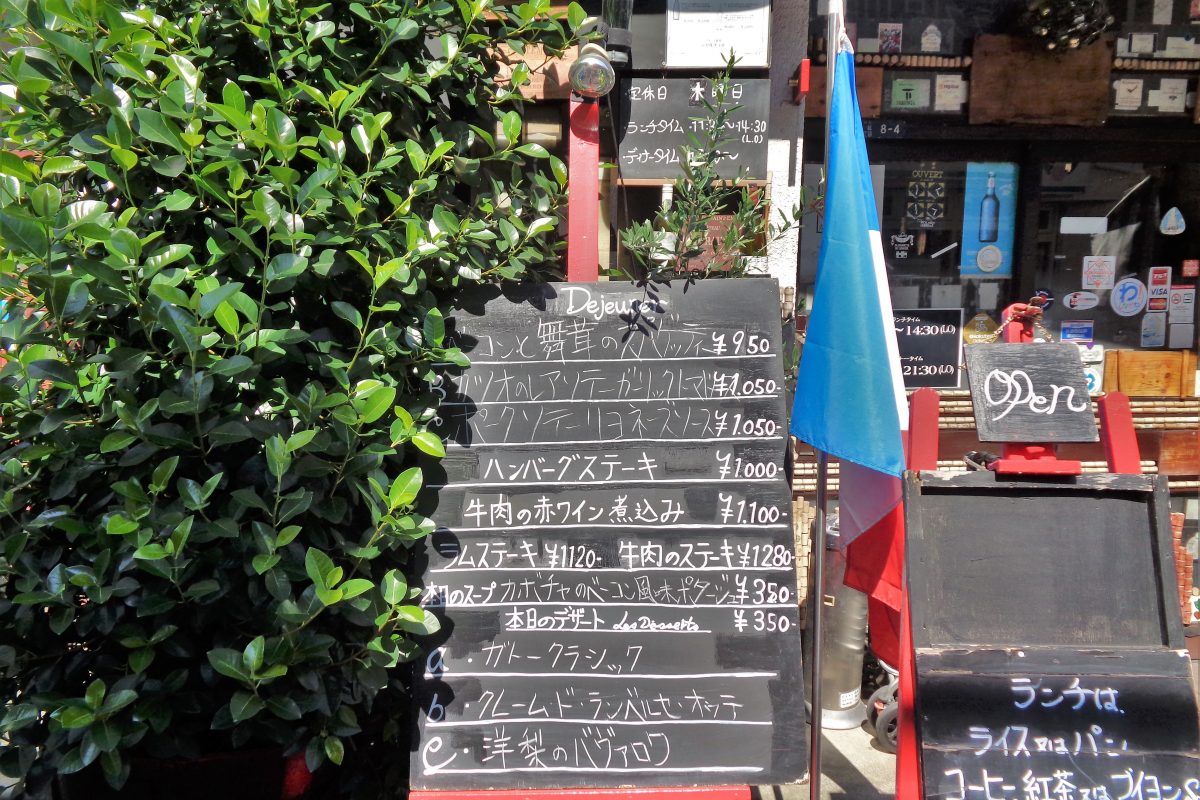 定休日 水曜日
ランチタイム 11:30～14:30
(L.O)
ディナータイム
8-4
OUVERT
Dejeuner
コンと舞茸の ¥950
カツオのレアソテーガーリックトマト ¥1.050-
ポークソテーリヨネーズソース ¥1.050-
ハンバーグステーキ ¥1.000-
牛肉の赤ワイン煮込み ¥1.100-
ラムステーキ ¥1120- 牛肉のステーキ ¥1280-
本日のスープ カボチャのベーコン風味ポタージュ ¥350-
本日のデザート Les Desserts ¥350-
a・ガトークラシック
b・クレーム・ド・ランベルセ・オッテ
c・洋梨のバヴァロワ
ランチタイム
～14:30(LO)
ータイム
21:30(LO)
VISA
Open
ランチは
ライス又はパン
コーヒー紅茶又はブイヨン